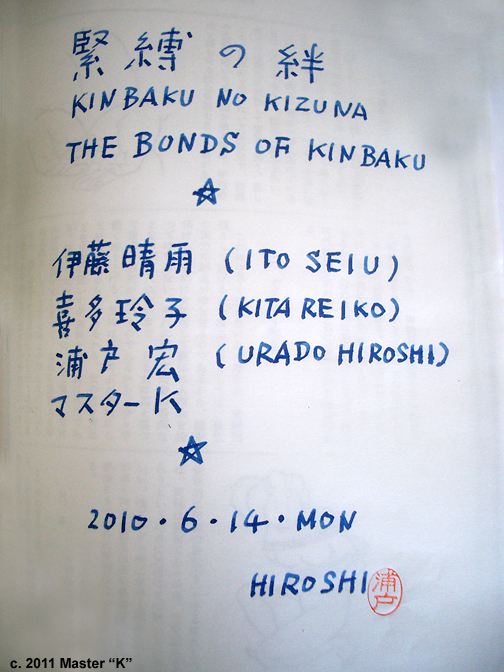 緊縛の絆
KINBAKU NO KIZUNA
THE BONDS OF KINBAKU
伊藤晴雨 (ITO SEIU)
喜多玲子 (KITA REIKO)
浦戸宏 (URADO HIROSHI)
マスターK
2010・6・14・MON
HIROSHI 浦戸
c. 2011 Master “K”